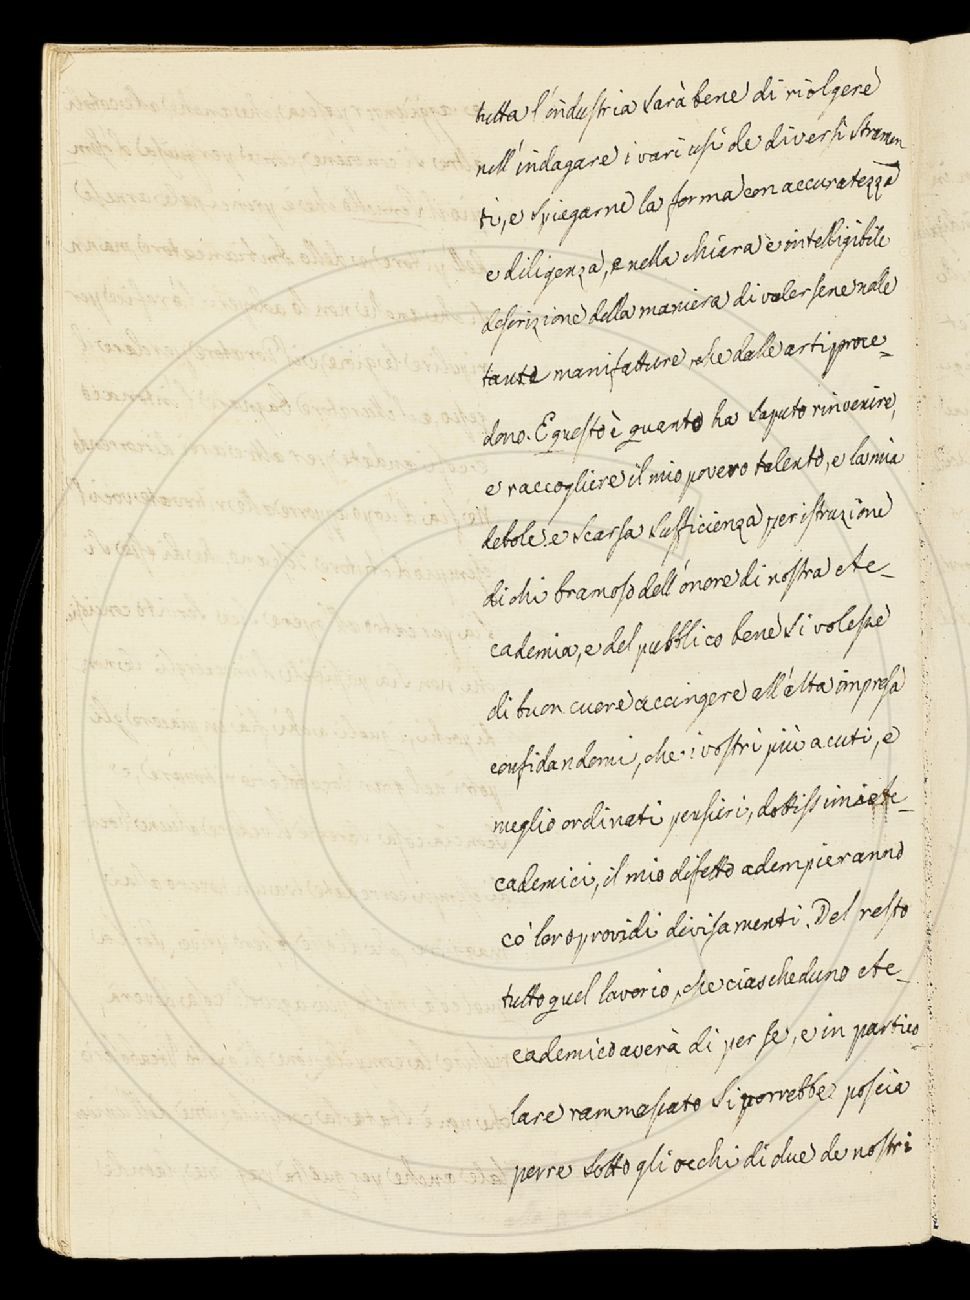 tutta l'industria sarà bene di riolgere
nell'indagare i vari usi de diversi strumen
ti, e spiegarne la forma con accuratezza
e diligenza, e nella chiara e intelligibile
descrizione della maniera di valersene nelle
tante manifatture, che dalle arti proce_
dono. E questo è quanto ha saputo rinvenire,
e raccogliere il mio povero talento, e la mia
debole e scarsa sufficienza per istruzione
di chi bramoso dell'onore di nostra Ac_
cademia, e del pubblico bene si volesse
di buon cuore accingere all'alta impresa
confidandomi, che i vostri più acuti, e
meglio ordinati pensieri, dottissimi Ac_
cademici, il mio difetto adempieranno
co' loro providi divisamenti. Del resto
tutto quel lavorio, che ciascheduno Ac_
cademico averà di per se, e in partico_
lare rammassato si porrebbe poscia
porre sotto gli occhi di due de nostri